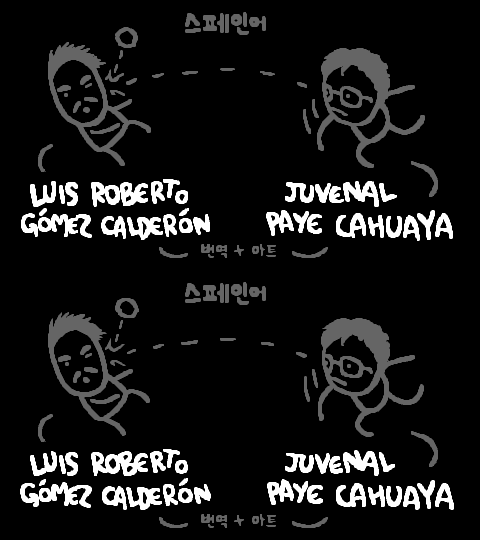 스페인어
LUIS ROBERTO
GÓMEZ CALDERÓN
JUVENAL
PAYE CAHUAYA
번역 + 아트
스페인어
LUIS ROBERTO
GÓMEZ CALDERÓN
JUVENAL
PAYE CAHUAYA
번역 + 아트